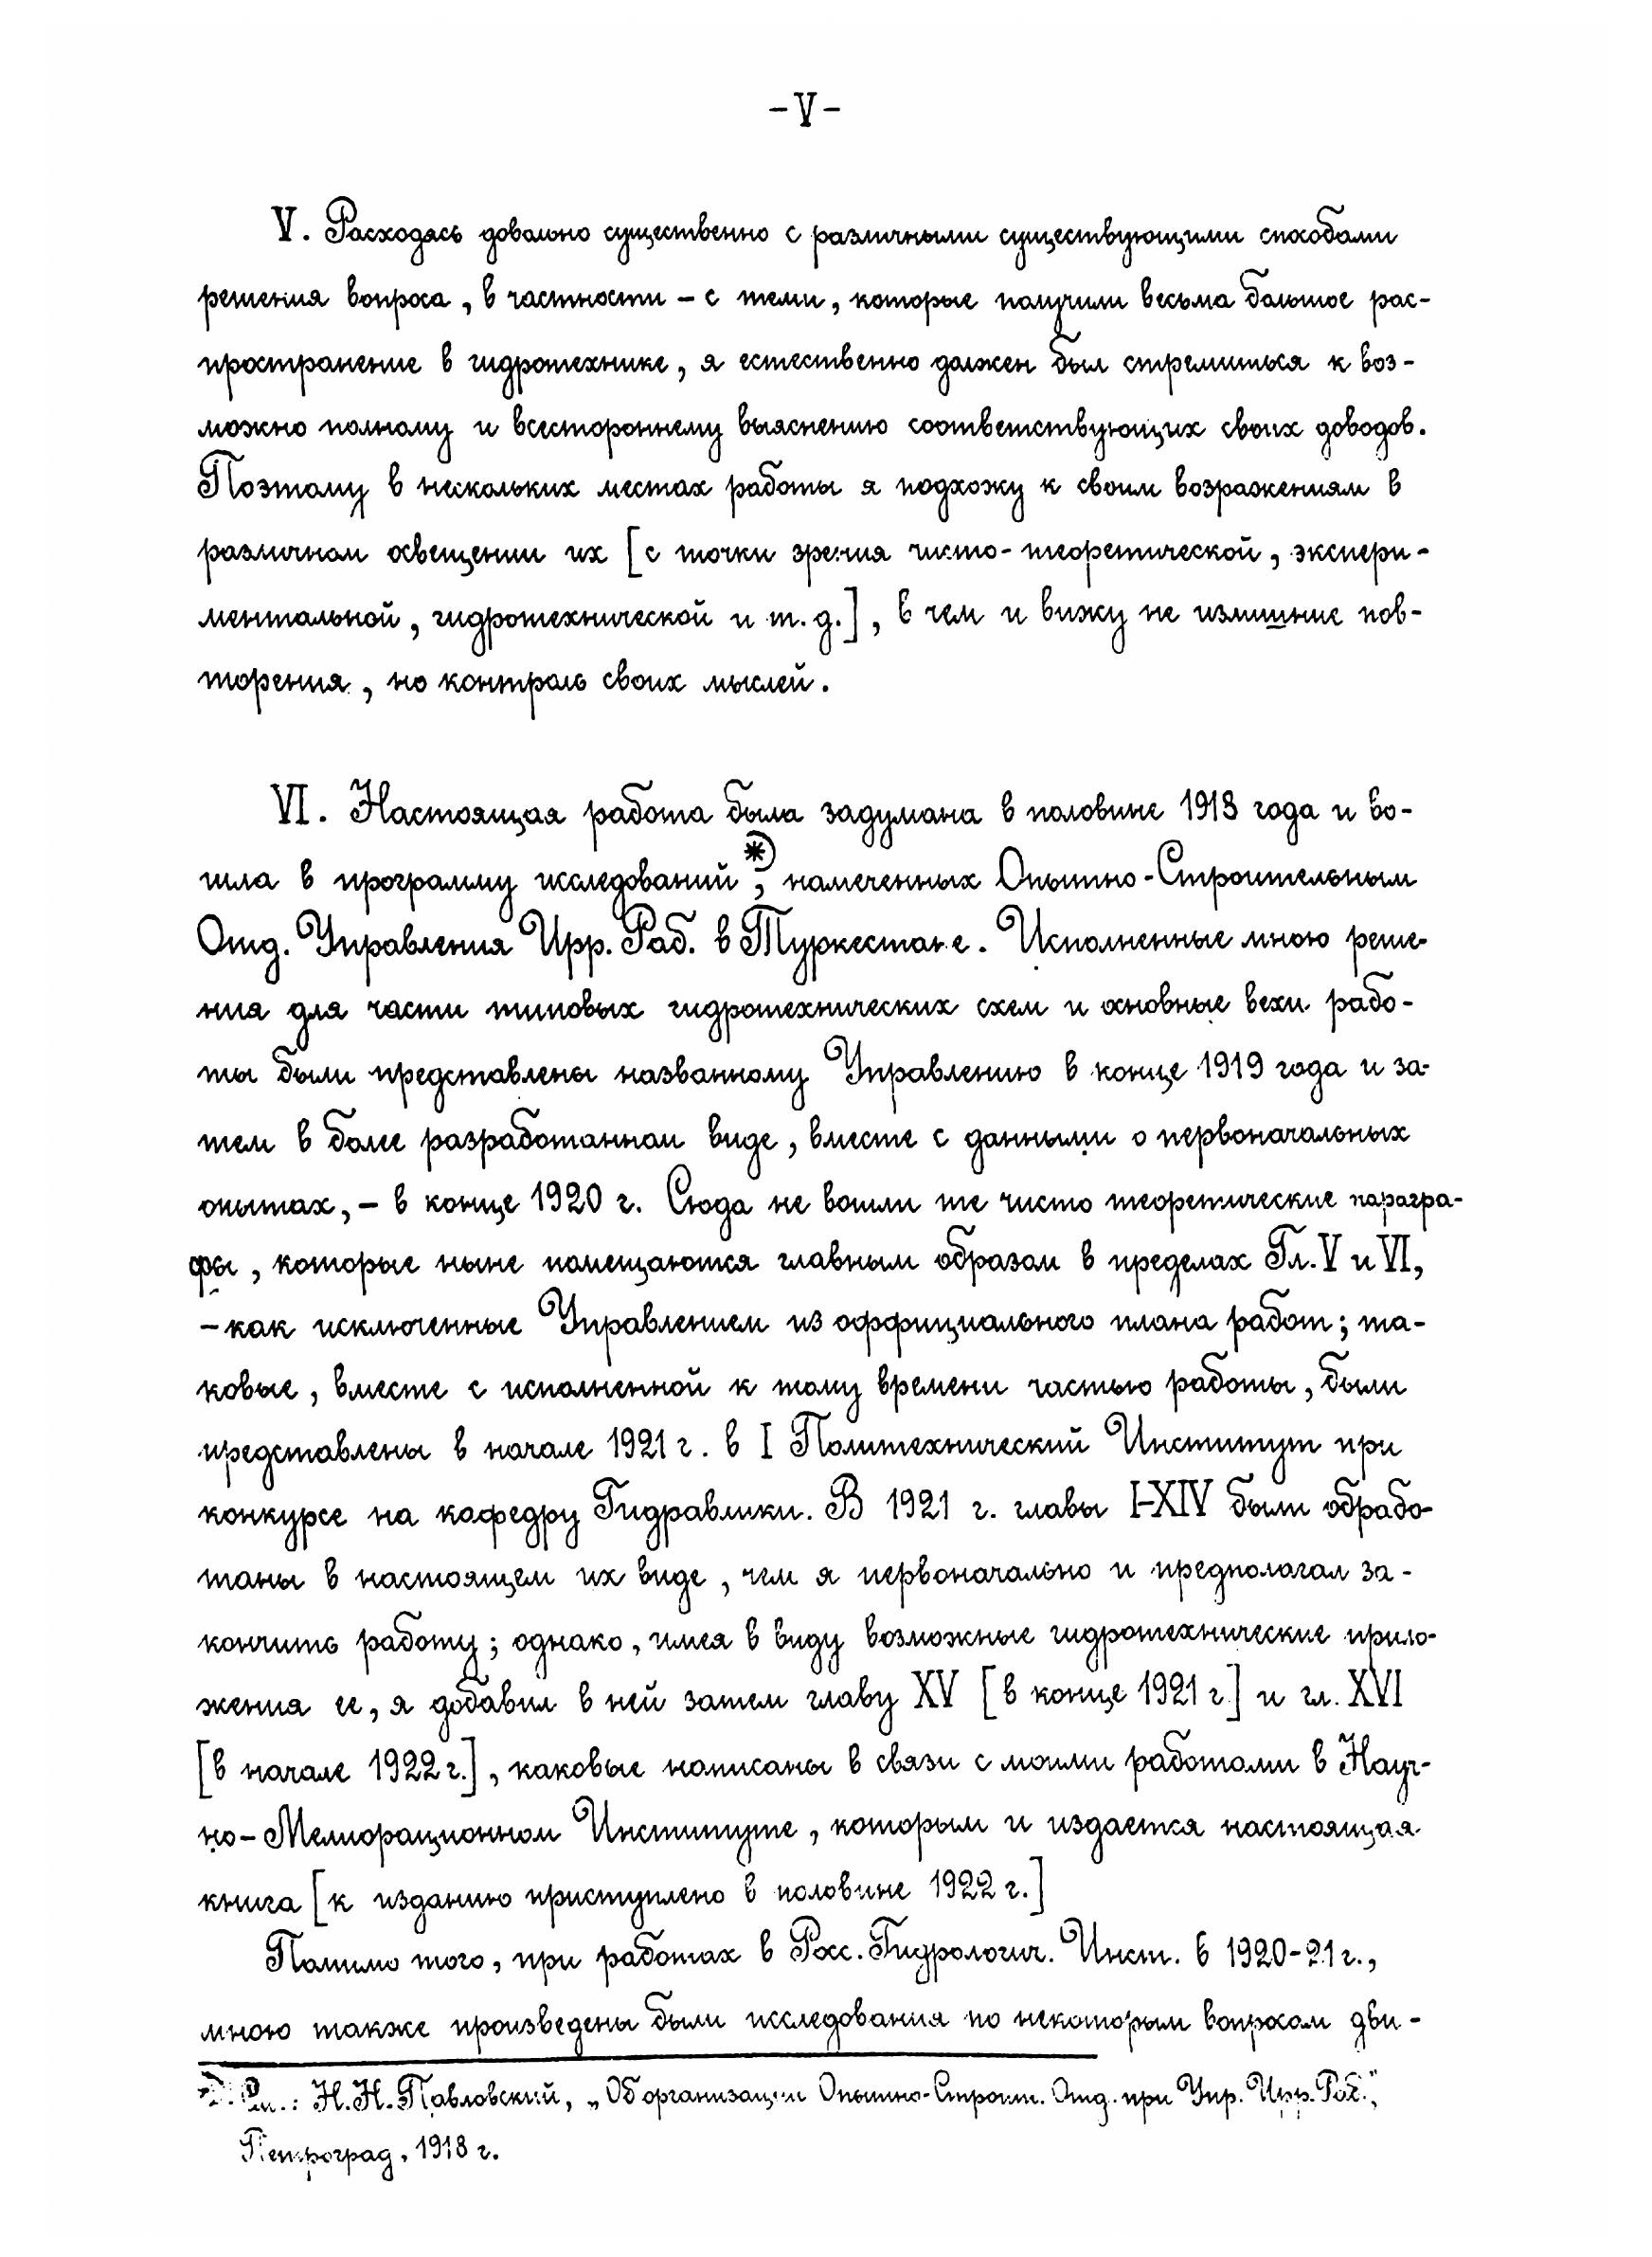 -V-
V. Расходясь довольно существенно с различными существующими способами
решения вопроса, в частности – с теми, которые получили весьма большое рас-
пространение в гидротехнике, я естественно должен был стремиться к воз-
можно полному и всестороннему выяснению соответствующих своих доводов.
Поэтому в нескольких местах работы я подхожу к своим возражениям в
различном освещении их [с точки зрения чисто-теоретической, экспери-
ментальной, гидротехнической и т. д.], в чем и вижу не излишние пов-
торения, но контроль своих мыслей.
VI. Настоящая работа была задумана в половине 1918 года и во-
шла в программу исследований *), намеченных Опытно-Строительным
Отд. Управления Ирр. Раб. в Туркестане. Исполненные мною реше-
ния для части типовых гидротехнических схем и основные вехи рабо-
ты были представлены названному Управлению в конце 1919 года и за-
тем в более разработанном виде, вместе с данными о первоначальных
опытах, – в конце 1920 г. Сюда не вошли те чисто теоретические парагра-
фы, которые ныне помещаются главным образом в пределах Гл. V и VI,
– как исключенные Управлением из оффициального плана работ; та-
ковые, вместе с исполненной к тому времени частью работы, были
представлены в начале 1921 г. в I Политехнический Институт при
конкурсе на кафедру Гидравлики. В 1921 г. главы I-XIV были обрабо-
таны в настоящем их виде, чем я первоначально и предполагал за-
кончить работу; однако, имея в виду возможные гидротехнические прило-
жения ее, я добавил в ней затем главу XV [в конце 1921 г.] и гл. XVI
[в начале 1922 г.], каковые написаны в связи с моими работами в Науч-
но-Мелиорационном Институте, которым и издается настоящая
книга [к изданию приступлено в половине 1922 г.]
Помимо того, при работах в Росс. Гидрологич. Инст. в 1920-21 г.,
мною также произведены были исследования по некоторым вопросам дви-
*) См.: Н. Н. Павловский, „Об организации Опытно-Строит. Отд. при Упр. Ирр. Раб.",
Петроград, 1918 г.